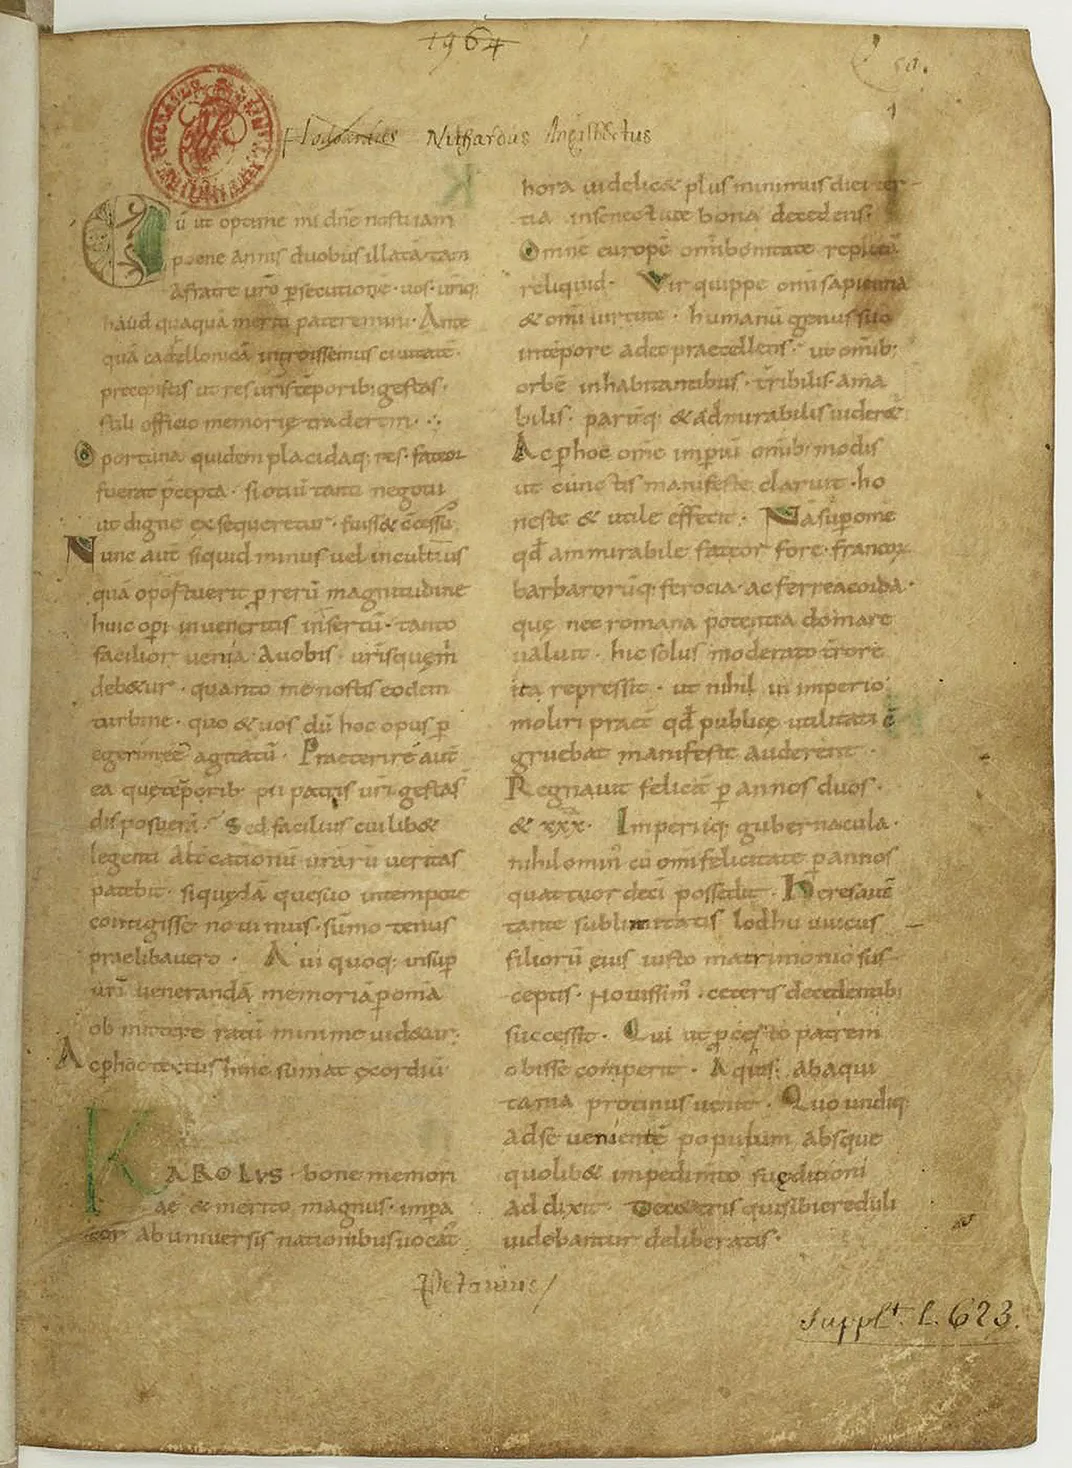 1964
50.
1
Flodoardus Nithardus Angilberctus
Cū ut optime mi dn̄e nosti iam
poene annis duobus illatā tam
a fratre uro ꝑsecutione · uos · uriq;
haud quaquā meriti pateremini · Ante
quā cadellonicā ingroissemus ciuitatē ·
precepistis ut res uris tēporib; gestas ·
stili officio memorie traderem ·
Oportuna quidem placidaq; res · fateor
fuerat p̄cepta · si otiū tanti negotii
ut digne exsequeretur · fuiss& c̄cessū
Nunc aut̄ siquid minus uel incultius
quā oportuerit p̱ rerū magnitudine
huic opi inueneritis insertū · tanto
facilior uenia · Auobis · urisquem̄
deb&ur · quanto me nostis eodem
turbine · quo & uos dū hoc opus p̱
egerim ēē agitatū · Praeterire aut̄
ea que tēporib; pii patris uri gesta s̄
disposuerā · Sed facilius cuilib&
legenti altercationū urarū ueritas
patebit · si quedā que suo in tempore
contigisse nouimus · sūmo tenus
praelibauero · Aui quoq; insup̱
uri uenerandā memoriā p̱ omia
obmittere ratū minime uid&ur;
Ac p̱hoc textus hinc sumat exordiū
KAROLVS · bone memori
ae & merito magnus · impa
tor ab uniuersis nationibus uocat
hora uidelic& plus minimus diei ter
tia · in senectute bona decedens ·
Omnē europē omī bonitate repletā
reliquid · Vir quippe omī sapientia
& omī uirtute · humanū genus suo
in tēpore adeo praecellens · ut omīb;
orbē inhabitantibus · tribilis · ama
bilis · pariterq; & admirabilis uider&
Ac p̱hoc omē imperiū omīb; modis
ut cunctis manifeste claruit · ho
neste & utile effecit · Nā sup̱ omē
qd̄ ammirabile fateor fore · francoꝝ
barbarorūq; ferocia · ac ferrea corda ·
que nec romana potentia domare
ualuit · hic solus moderato trore
ita repressit · ut nihil in imperio
moliri praet̄ qd̄ publice utilitati c̄
gruebat manifeste auderent ·
Regnauit felicit̄ p̱ annos duos ·
& xxx · Imperiiq; gubernacula ·
nihilomin cū omī felicitate p̱ annos
quattuor decī possedit · Heres aut̄
tante sublimitatis lodhuuuicus
filiorū eius iusto matrimonio sus
ceptis · Nouissim · ceteris decedentib;
successit · Qui ut p̱ certo patrem
obisse comperit · Aquis; ab aqui
tania protinus uenit · Quo undiq;
ad se ueniente populum absque
quolib& impedimto sue ditioni
addixit · De ceteris qui sibi creduli
uidebantur deliberatis ·
Petauius
Supplt. L. 623.